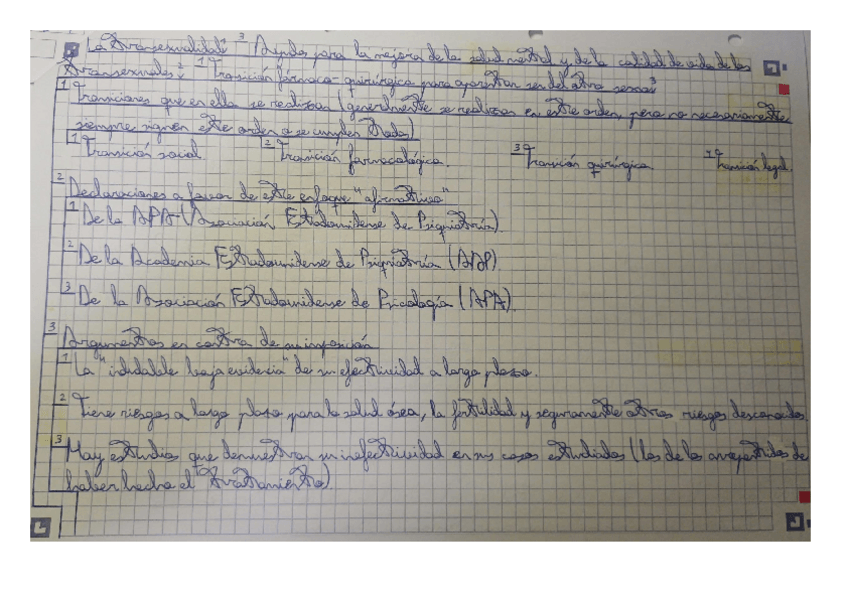 La transexualidad: 3 Ayuda para la mejora de la salud mental y de la calidad de vida de los
transexuales: 2 1 Transición fármaco-quirúrgica para aparentar ser del otro sexo
1 Transiciones que en ella se realizan (generalmente se realizan en este orden, pero no necesariamente
siempre siguen este orden o se cumplen todas)
1 Transición social 2 Transición farmacológica. 3 Transición quirúrgica Transición legal.
2 Declaraciones a favor de este enfoque "afirmativo"
1 De la APA (Asociación Estadounidense de Psiquiatría)
2 De la Academia Estadounidense de Psiquiatría
3 De la Asociación Estadounidense de Psicología (APA)
3 Argumentos en contra de su
1 La "indudable baja evidencia" de su efectividad a largo plazo.
2 Tiene riesgos a largo plazo para la salud ósea, la fertilidad y seguramente otros riesgos desconocidos
3 Hay estudios que demuestran su inefectividad en sus casos estudiados (los de los arrepentidos de
haber hecho el tratamiento)